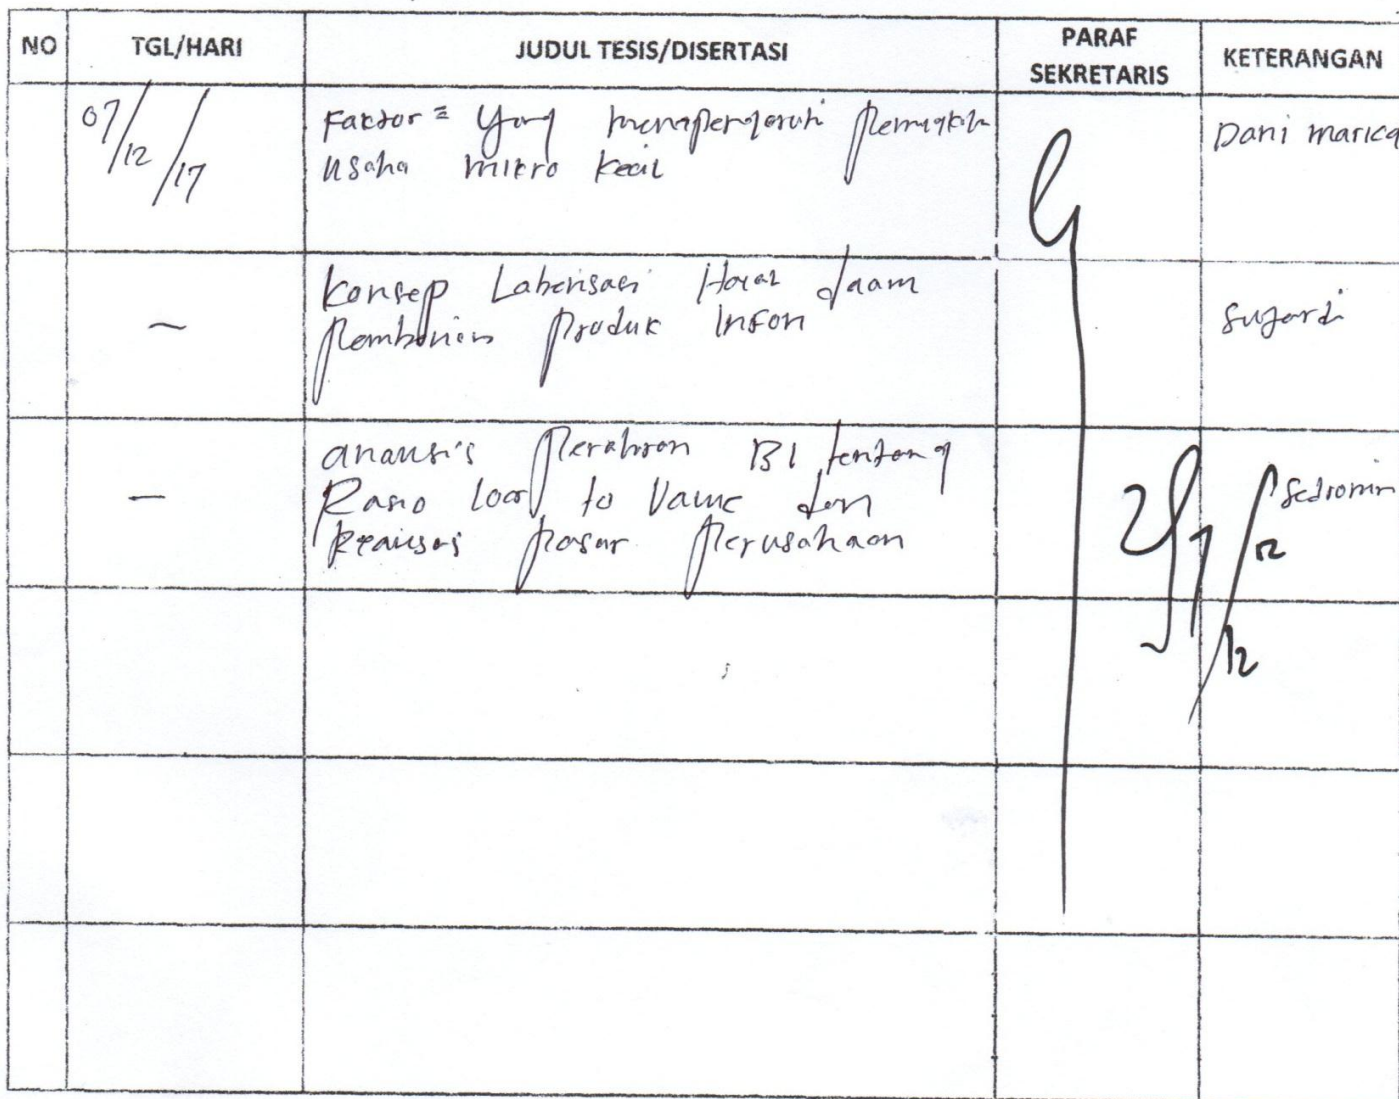 NO TGL/HARI JUDUL TESIS/DISERTASI PARAF SEKRETARIS KETERANGAN
07/12/17
Faktor² Yang mempengaruhi
usaha mikro kecil
Dani marica
Konsep Labelisasi Halal dalam
Pembelian Produk
Sugardi
—
analisis Peraturan BI tentang
Rasio Loan to Value dan
pasar Perusahaan
12
12